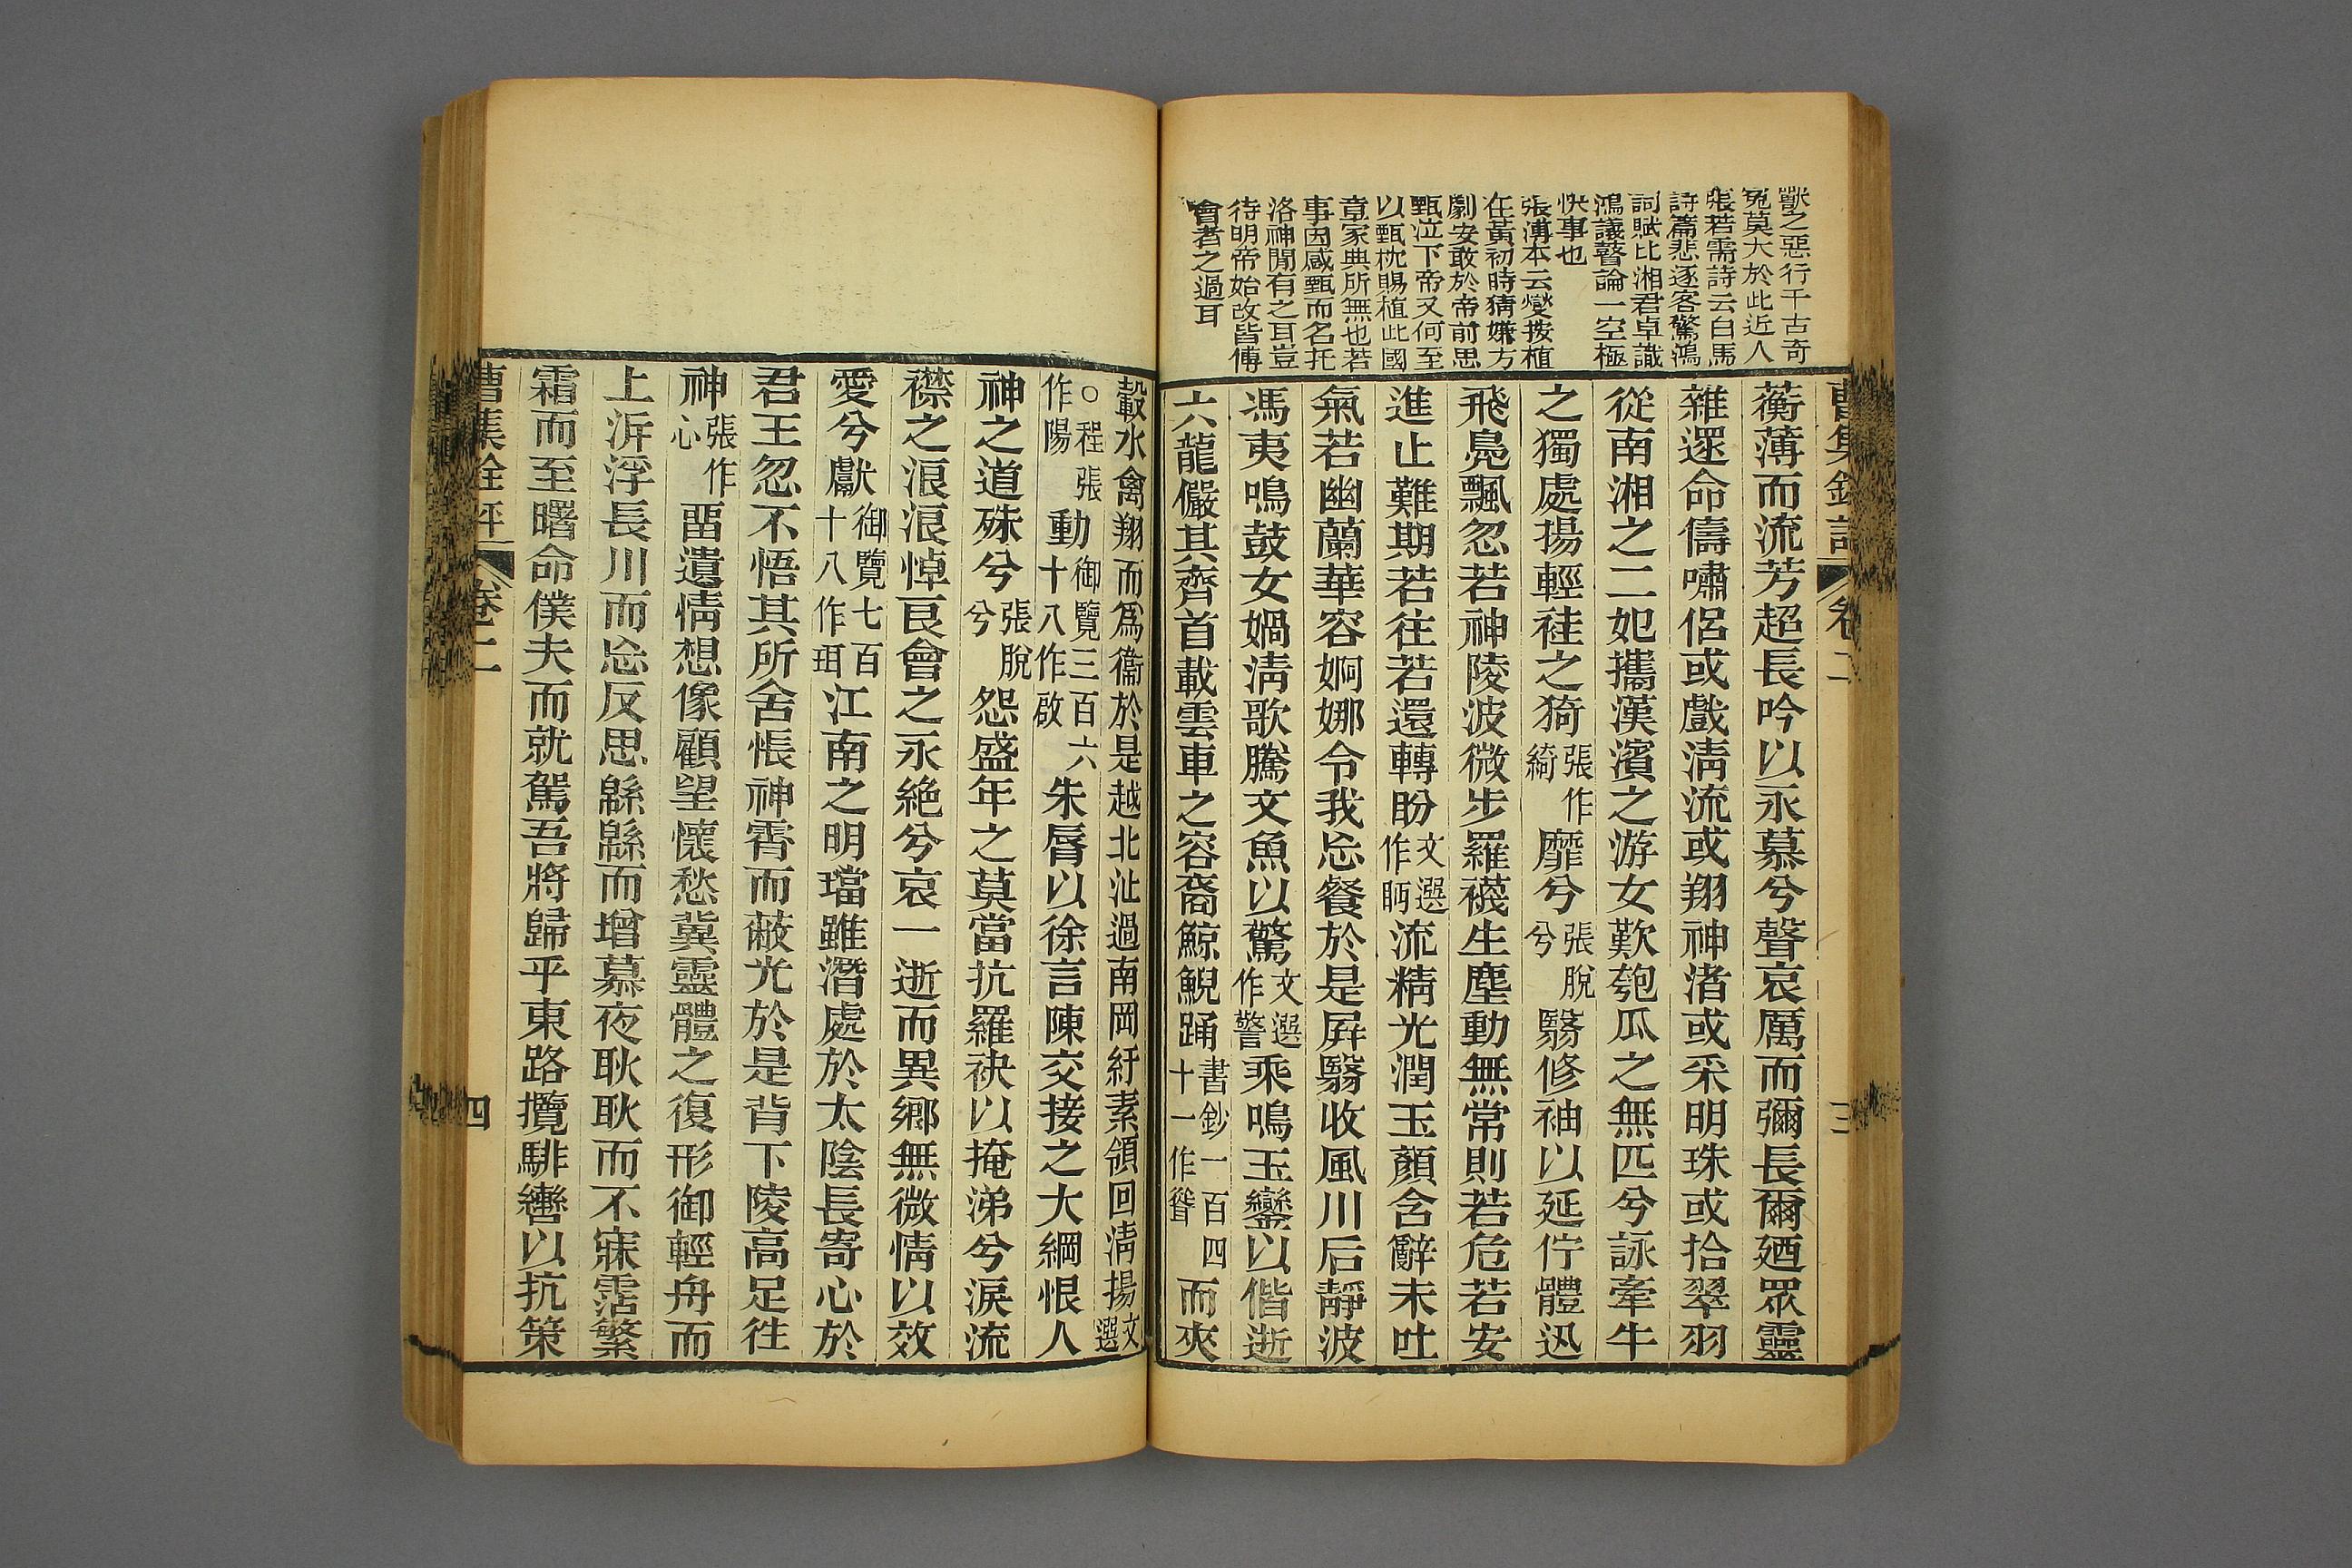 獸之惡行千古奇
冤莫大於此近人
張若需詩云白馬
詩篇悲逐客驚鴻
詞賦比湘君卓識
鴻議瞽論一空極
快事也
張溥本云燮按植
在黃初時猜嫌方
劇安敢於帝前思
甄泣下帝又何至
以甄枕賜植此國
章家典所無也若
事因感甄而名托
洛神閒有之耳豈
待明帝始改皆傅
會者之過耳
曹集銓評 卷二 三
蘅薄而流芳超長吟以永慕兮聲哀厲而彌長爾廼眾靈
雜遝命儔嘯侶或戲淸流或翔神渚或采明珠或拾翠羽
從南湘之二妃攜漢濱之游女歎匏瓜之無匹兮詠牽牛
之獨處揚輕袿之猗張作綺靡兮張脫兮翳修袖以延佇體迅
飛鳧飄忽若神陵波微步羅襪生塵動無常則若危若安
進止難期若往若還轉盼文選作眄流精光潤玉顏含辭未吐
氣若幽蘭華容婀娜令我忘餐於是屏翳收風川后靜波
馮夷鳴鼓女媧淸歌騰文魚以驚文選作警乘鳴玉鸞以偕逝
六龍儼其齊首載雲車之容裔鯨鯢踊書鈔一百四十一作聳而夾
轂水禽翔而爲衞於是越北沚過南岡紆素領回淸揚文選
○程張作陽動御覽三百六十八作啟朱脣以徐言陳交接之大綱恨人
神之道殊兮張脫兮怨盛年之莫當抗羅袂以掩涕兮淚流
襟之浪浪悼良會之永絕兮哀一逝而異鄉無微情以效
愛兮獻御覽七百十八作珥江南之明璫雖潛處於太陰長寄心於
君王忽不悟其所舍悵神霄而蔽光於是背下陵高足往
神張作心畱遺情想像顧望懷愁冀靈體之復形御輕舟而
上泝浮長川而忘反思緜緜而增慕夜耿耿而不寐霑繁
霜而至曙命僕夫而就駕吾將歸乎東路攬騑轡以抗策
曹集銓評 卷二 四